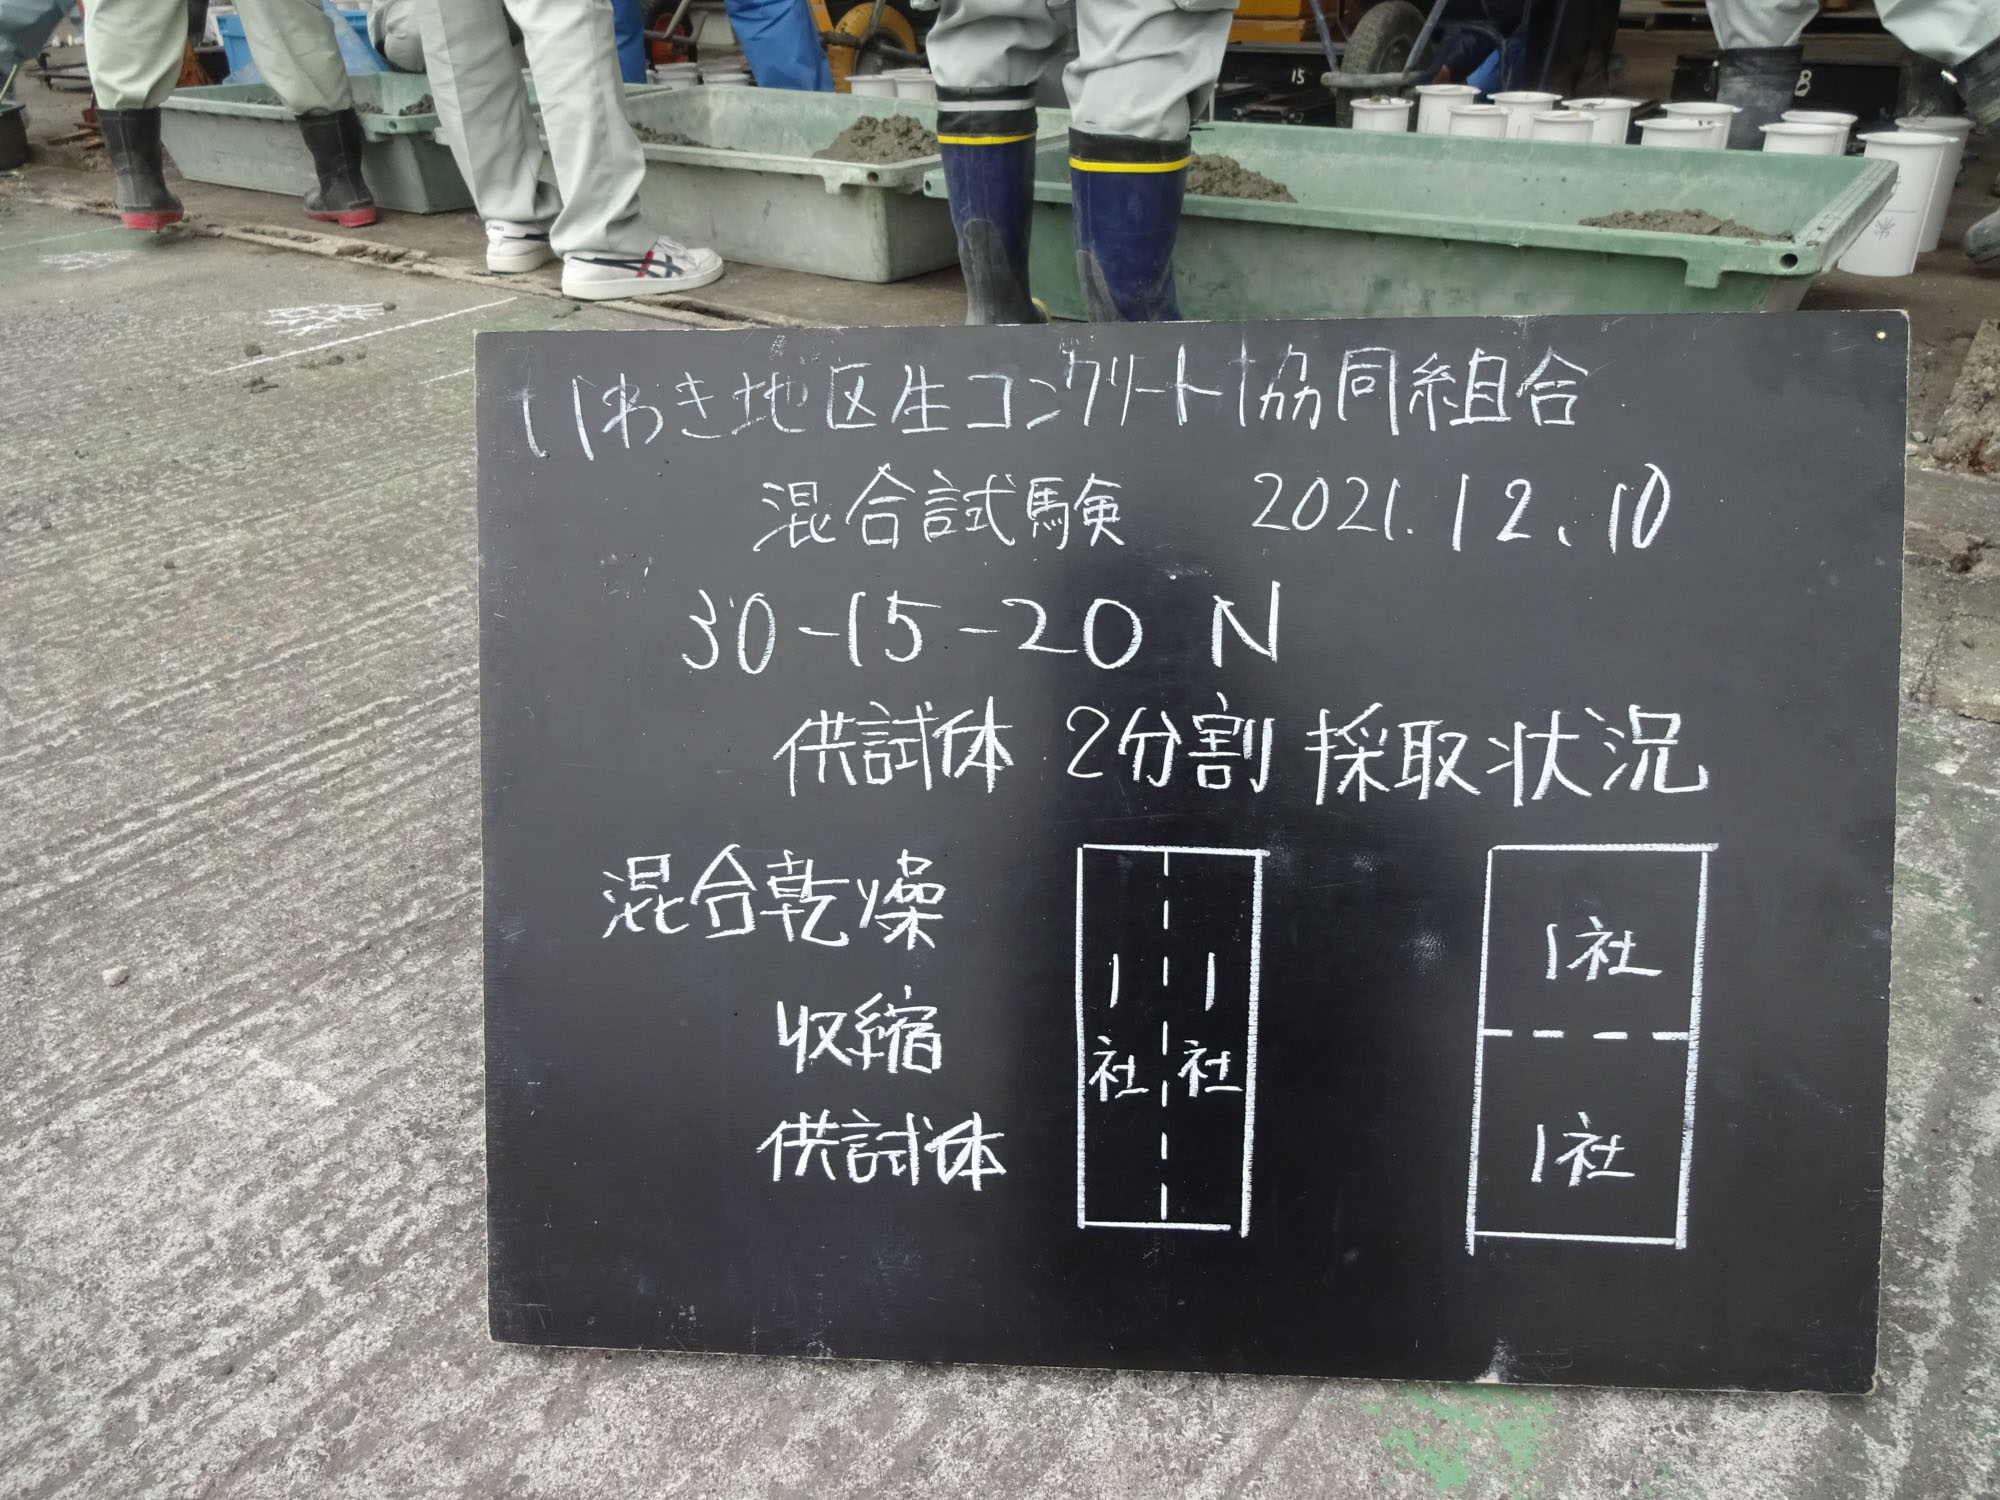 15
8
いわき地区生コンクリート協同組合
混合試験 2021.12.10
30-15-20 N
供試体 2分割 採取状況
混合乾燥
収縮
供試体
1社
1社
1社
1社